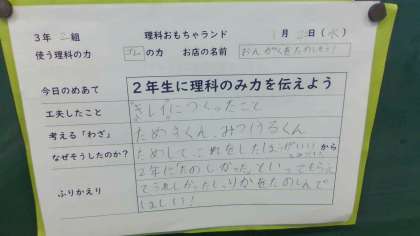 3年 二組 理科おもちゃランド 1月 日(水)
使う理科の力 ゴム の力 お店の名前 おんがくをたのしもう!
今日のめあて 2年生に理科のみ力を伝えよう
工夫したこと きレイにつくったこと
考える「わざ」 ためきくん、みつけるくん
なぜそうしたのか? ためして、これをしたほうがいい から
ふりかえり 2年に「たのしかった」といってもらえ
てうれしかったしりかをたのしんで
ほしい!